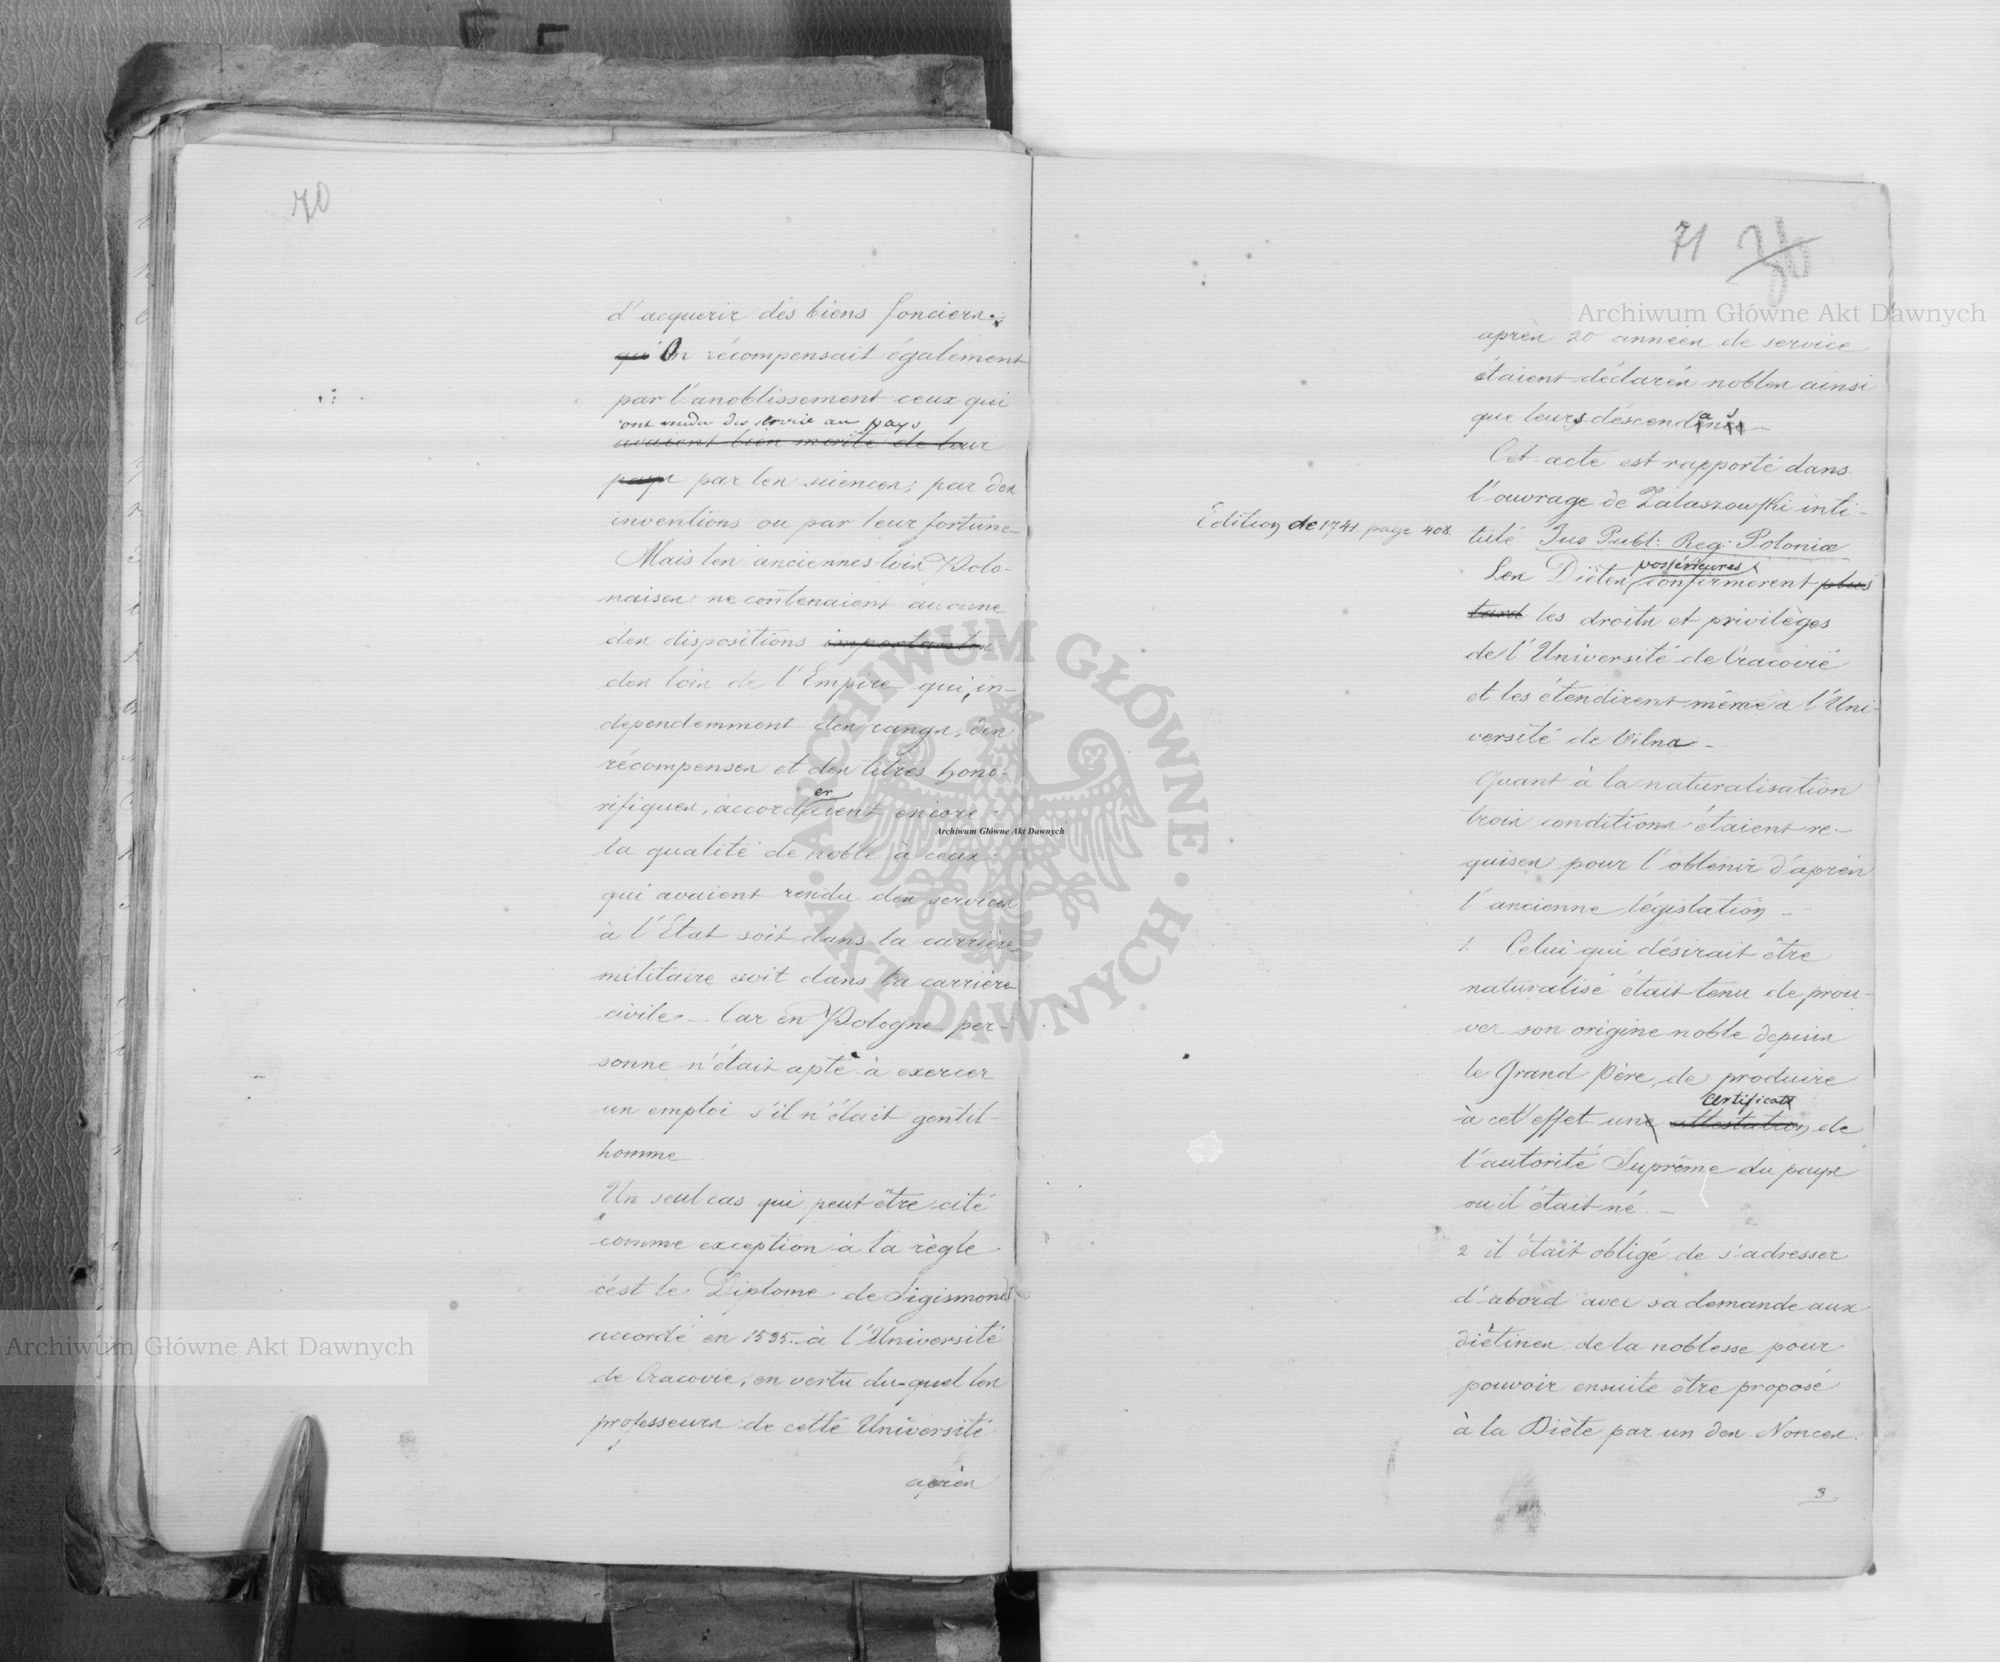 70
d'acquérir des biens fonciers.
qu' On récompensait également
par l'anoblissement ceux qui
ont rendu des service au pays
avaient bien mérité de leur
pays par les sciences, par des
inventions ou par leur fortune
Mais les anciennes lois Polo-
naises ne contenaient aucune
des dispositions importantes
des lois de l'Empire qui, in-
dépendemment des rangs, des
récompenses et des titres hono-
rifiques, accordaient encore
er
la qualité de noble à ceux
qui avaient rendu des services
à l'Etat soit dans la carrière
militaire soit dans la carrière
civile - Car en Pologne per-
sonne n'était apte à exercer
un emploi s'il n'était gentil-
homme
Un seul cas qui peut être cité
comme exception à la règle
c'est le Diplome de Sigismond I
accordé en 1535 à l'Université
de Cracovie, en vertu du-quel les
professeurs de cette Université
après
71
Archiwum Główne Akt Dawnych
après 20 années de service
étaient déclarés nobles ainsi
que leurs déscendants -
Cet acte est rapporté dans
l'ouvrage de Zalaszowski inti-
Edition de 1741 page 408
tulé Jus Publ: Reg: Poloniæ
Les Diètes postérieures confirmèrent plus
tard les droits et privilèges
de l'Université de Cracovie
et les étendirent même à l'Uni-
versité de Vilna -
Quant à la naturalisation
trois conditions étaient re-
quises pour l'obtenir d'après
l'ancienne législation -
1. Celui qui désirait être
naturalisé était tenu de prou-
ver son origine noble depuis
le Grand Père, de produire
certificat
à cet effet une attestation de
l'autorité Suprême du pays
ou il était né. -
2 il était obligé de s'adresser
d'abord avec sa demande aux
diètines de la noblesse pour
pouvoir ensuite être proposé
à la Diète par un des Nonces.
3
ARCHIWUM GŁÓWNE AKT DAWNYCH
Archiwum Główne Akt Dawnych
Archiwum Główne Akt Dawnych